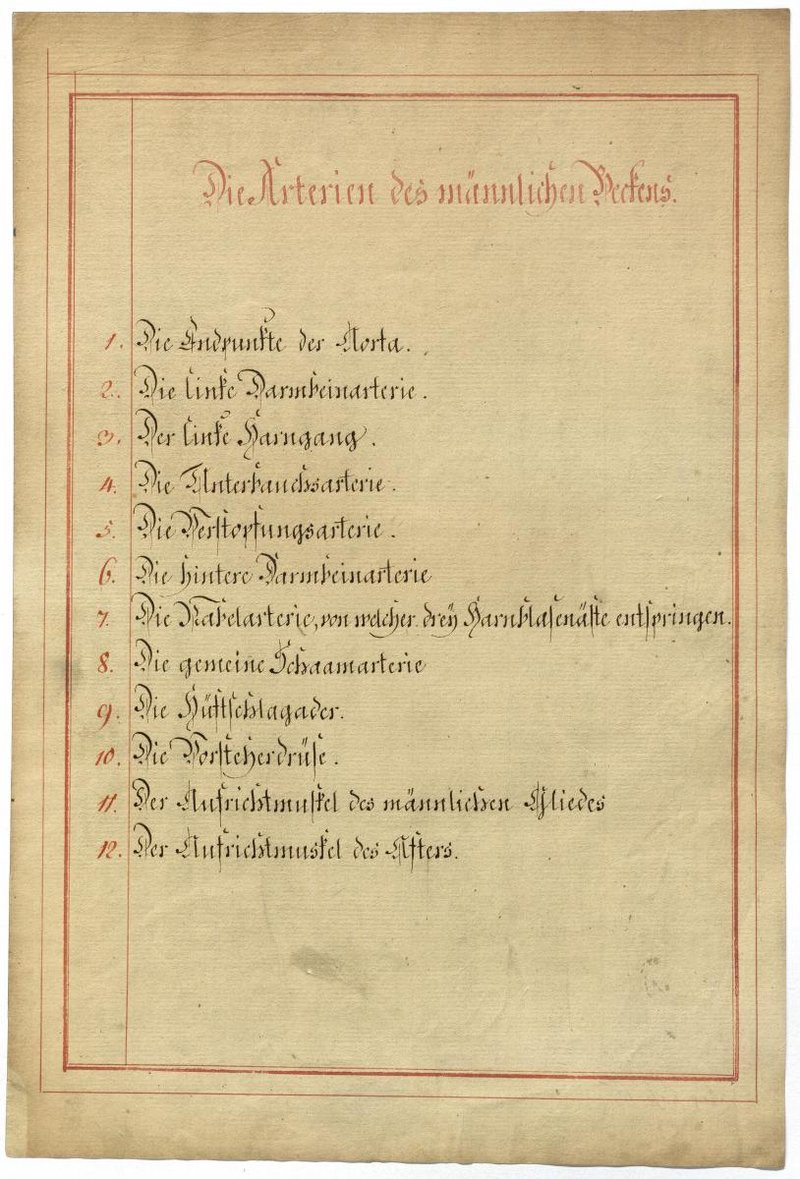 Die Arterien des männlichen Beckens.
1. Die Endpunkte der Aorta.
2. Die linke Darmbeinarterie.
3. Der linke Harngang.
4. Die Unterbauchsarterie.
5. Die Verstopfungsarterie.
6. Die hintere Darmbeinarterie
7. Die Nabelarterie, von welcher drey Harnblasenäste entspringen.
8. Die gemeine Schaamarterie
9. Die Hüftschlagader.
10. Die Vorsteherdrüse.
11. Der Aufrichtmuskel des männlichen Gliedes
12. Der Aufrichtmuskel des Afters.